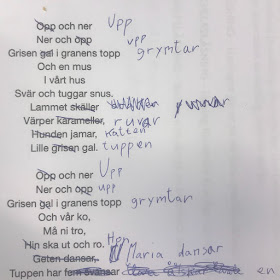 Opp och ner Upp
Ner och opp upp
Grisen gal i granens topp grymtar
Och en mus
I vårt hus
Svär och tuggar snus.
Lammet skäller
Värper karameller, ruvar
Hunden jamar, katten
Lille grisen gal. tuppen
Opp och ner Upp
Ner och opp upp
Grisen gal i granens topp grymtar
Och vår ko,
Må ni tro,
Hin ska ut och ro. Hon
Geten dansar, Maria dansar
Tuppen har fem svansar en